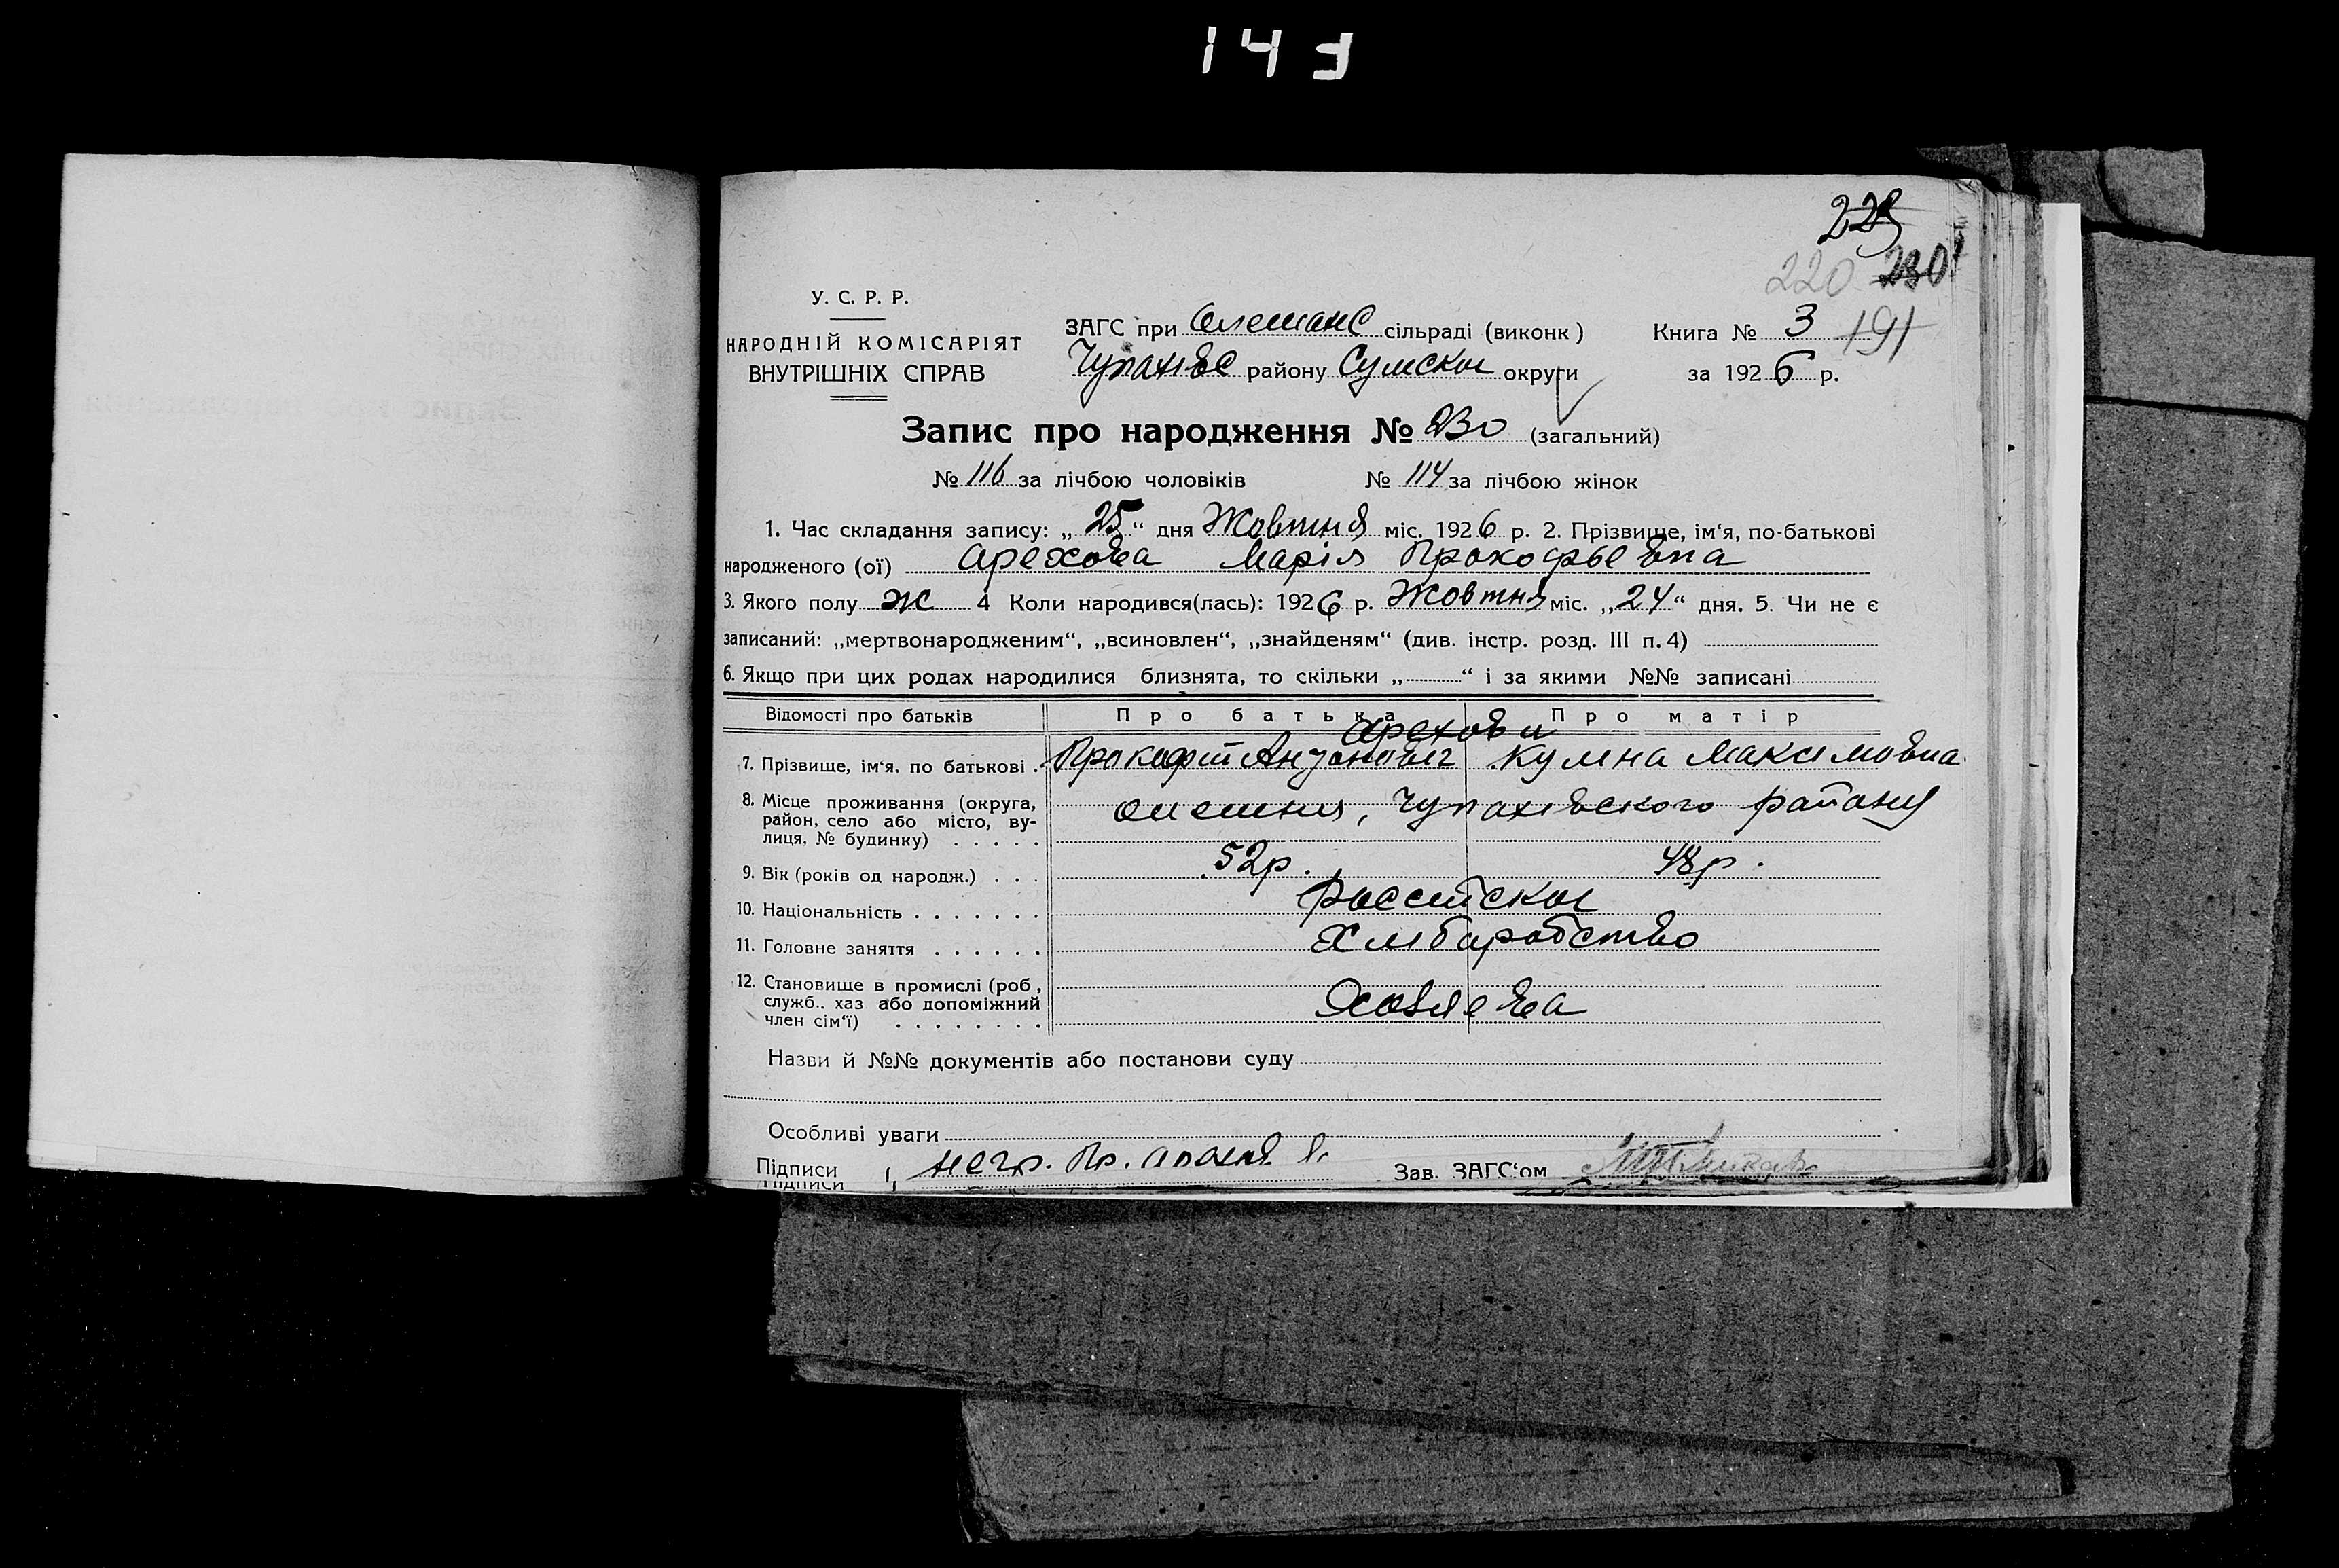 143
223
220 230
У. С. Р. Р.
НАРОДНІЙ КОМІСАРІЯТ
ВНУТРІШНІХ СПРАВ
ЗАГС при Олешанс сільраді (виконк )
Чупахівс району Сумскои округи
Книга № 3 191
за 1926 р.
Запис про народження № 230 (загальний)
№ 116 за лічбою чоловіків № 114 за лічбою жінок
1. Час складання запису: „ 25 “ дня Жовтня міс. 1926 р. 2. Прізвище, ім‘я, по-батькові
народженого (ої) Арехова Марія Прокофьевна
3. Якого полу Ж 4 Коли народився(лась): 1926 р. Жовтня міс. „ 24 “ дня. 5. Чи не є
записаний: „мертвонародженим“, „всиновлен“, „знайденям“ (див. інстр. розд. III п. 4)
6. Якщо при цих родах народилися близнята, то скільки „ “ і за якими №№ записані
Відомості про батьків Про батька Про матір
Арехови
7. Прізвище, ім‘я, по батькові . Прокофій Максимовна
8. Місце проживання (округа,
район, село або місто, ву-
лиця, № будинку) . . . . .
Олешня, Чупахівского району
9. Вік (років од народж.) . . . 52р. 48р.
10. Національність . . . . . . . Российскои
11. Головне заняття . . . . . . Хлібаробство
12. Становище в промислі (роб ,
служб.. хаз або допоміжний
член сім‘ї) . . . . . . . .
Хозяева
Назви й №№ документів або постанови суду
Особливі уваги
Підписи { негр. Пр. Зав. ЗАГС‘ом
Підписи {